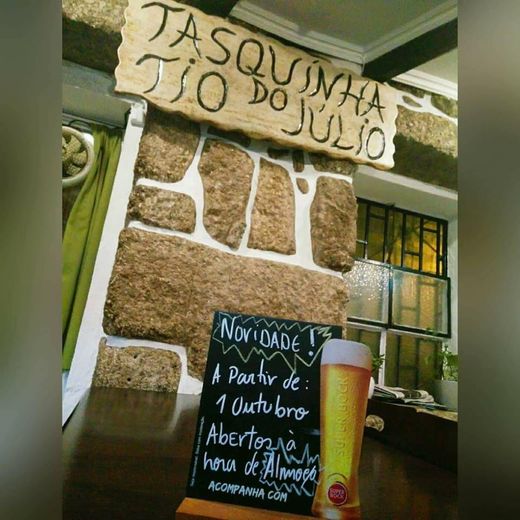 TASQUINHA
TIO DO JÚLIO
NOVIDADE!
A Partir de:
1 Outubro
Abertos à
hora de Almoço
ACOMPANHA.COM
SUPER BOCK
SUPER
BOCK